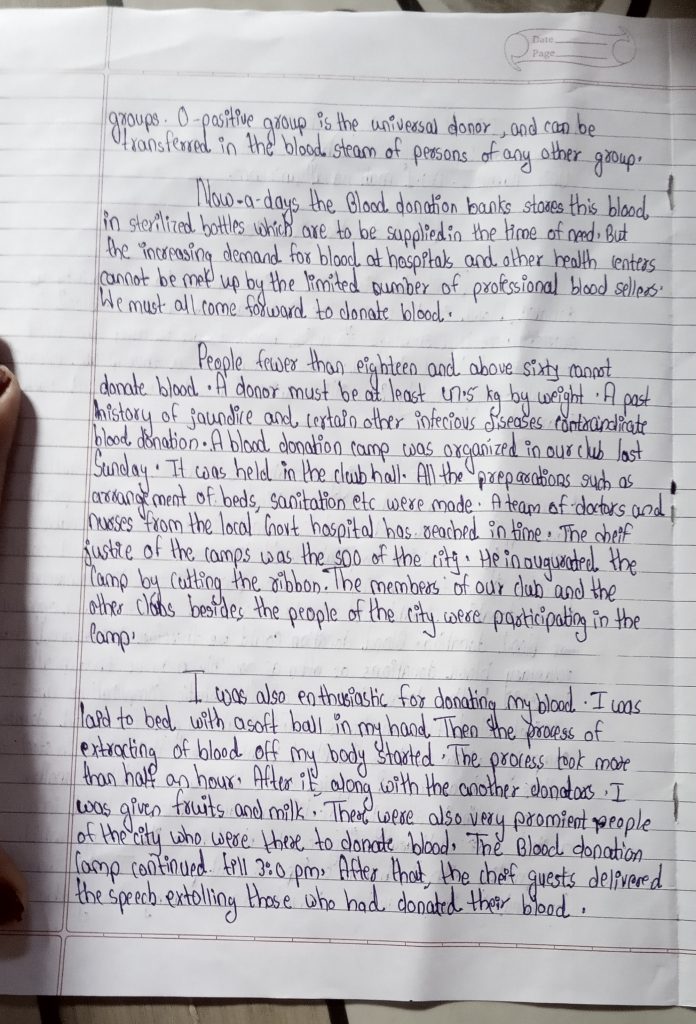 Date
Page
groups. O-positive group is the universal donor, and can be
transferred in the blood steam of persons of any other group.
Now-a-days the Blood donation banks stores this blood
in sterilized bottles which are to be supplied in the time of need. But
the increasing demand for blood at hospitals and other health centers
cannot be met up by the limited number of professional blood sellers.
We must all come forward to donate blood.
People fewer than eighteen and above sixty cannot
donate blood. A donor must be at least 47.5 kg by weight. A past
history of jaundice and certain other infecious diseases contraindicate
blood donation. A blood donation camp was organized in our club last
Sunday. It was held in the club hall. All the preparations such as
arrangement of beds, sanitation etc were made. A team of doctors and
nurses from the local Govt hospital has reached in time. The cheif
justie of the camps was the SDO of the city. He inaugurated the
camp by cutting the ribbon. The members of our club and the
other clobs besides the people of the city were participating in the
camp.
I was also enthusiastic for donating my blood. I was
laid to bed with a soft ball in my hand Then the process of
extracting of blood off my body started. The process took more
than half an hour. After it along with the another donators. I
was given fruits and milk. There were also very promient people
of the city who were there to donate blood. The Blood donation
camp continued till 3:0 pm. After that, the cheif guests delivered
the speech extolling those who had donated their blood.